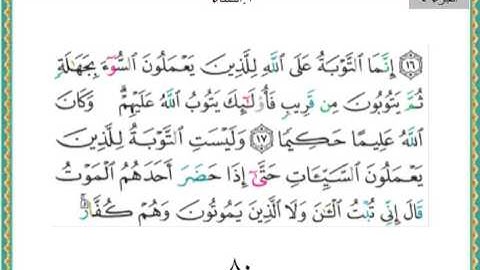 ١٦ إِنَّمَا التَّوْبَةُ عَلَى اللَّهِ لِلَّذِينَ يَعْمَلُونَ السُّوٓءَ بِجَهَٰلَةٍ
ثُمَّ يَتُوبُونَ مِن قَرِيبٍ فَأُو۟لَٰٓئِكَ يَتُوبُ اللَّهُ عَلَيْهِمْ ۗ وَكَانَ
اللَّهُ عَلِيمًا حَكِيمًا ١٧ وَلَيْسَتِ التَّوْبَةُ لِلَّذِينَ
يَعْمَلُونَ السَّيِّـَٔاتِ حَتَّىٰٓ إِذَا حَضَرَ أَحَدَهُمُ الْمَوْتُ
قَالَ إِنِّي تُبْتُ الْـَٰٔنَ وَلَا الَّذِينَ يَمُوتُونَ وَهُمْ كُفَّارٌ
٨٠